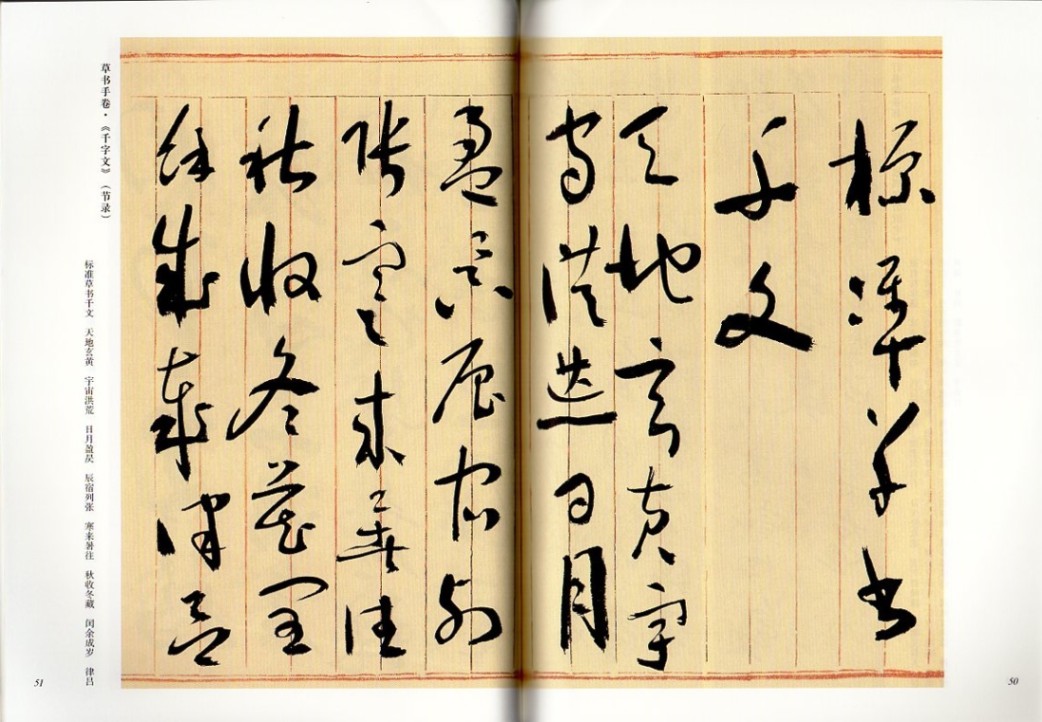 標準草書
千文
天地玄黃宇
宙洪荒日月
盈昃辰宿列
張寒來暑往
秋收冬藏閏
餘成歲律呂
草书手卷·《千字文》（节录）
标准草书千文 天地玄黄 宇宙洪荒 日月盈昃 辰宿列张 寒来暑往 秋收冬藏 闰余成岁 律吕
50
51